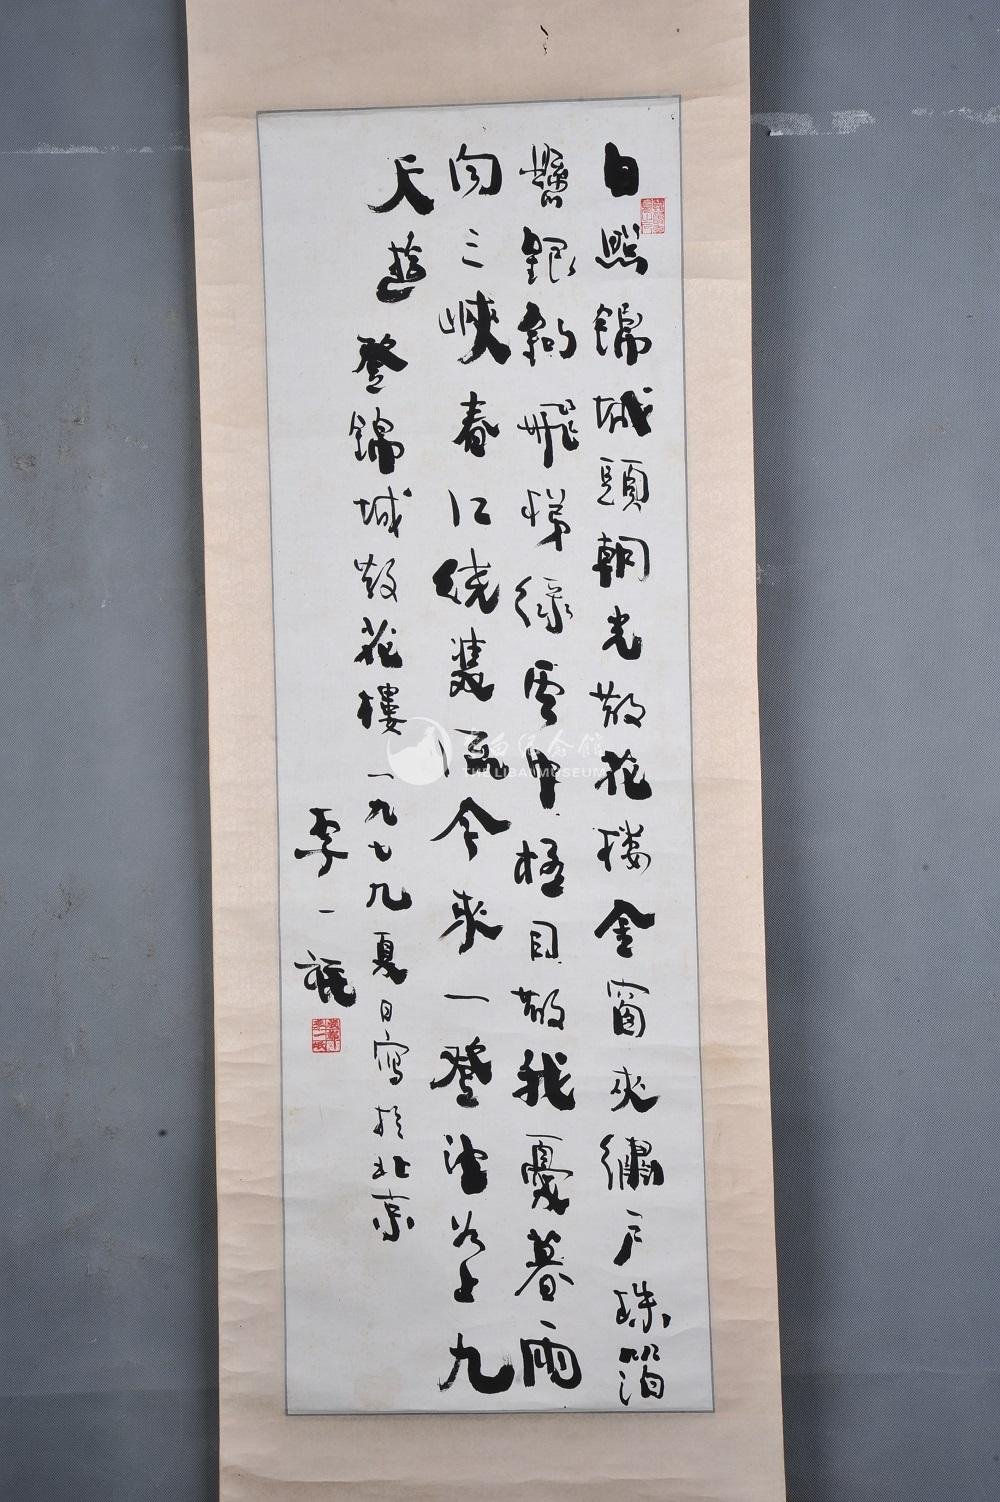 日照錦城頭朝光散花楼金窗夾繡戶珠箔
懸銀鉤飛梯綠雲中極目散我憂暮雨
向三峽春江繞雙流今來一登望如上九
天遊 登錦城散花樓 一九七九夏日寫於北京
李一氓
李白纪念馆
THE LIBAI MUSEUM